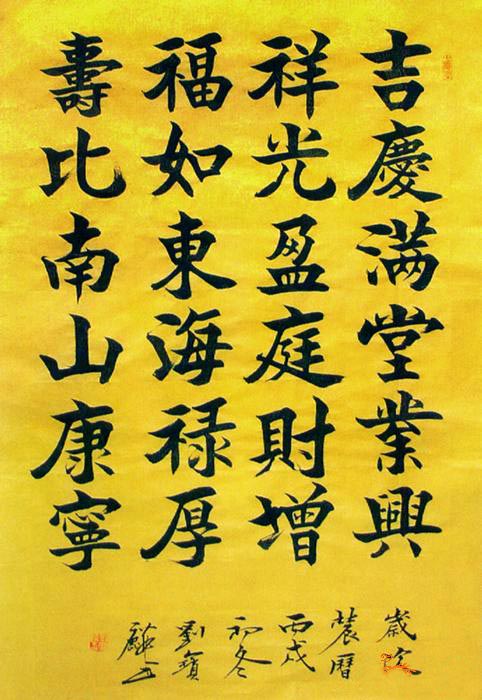 吉慶满堂業興
祥光盈庭財增
福如東海禄厚
壽比南山康寧
歲次
農曆
丙戌
初冬
劉寶
书